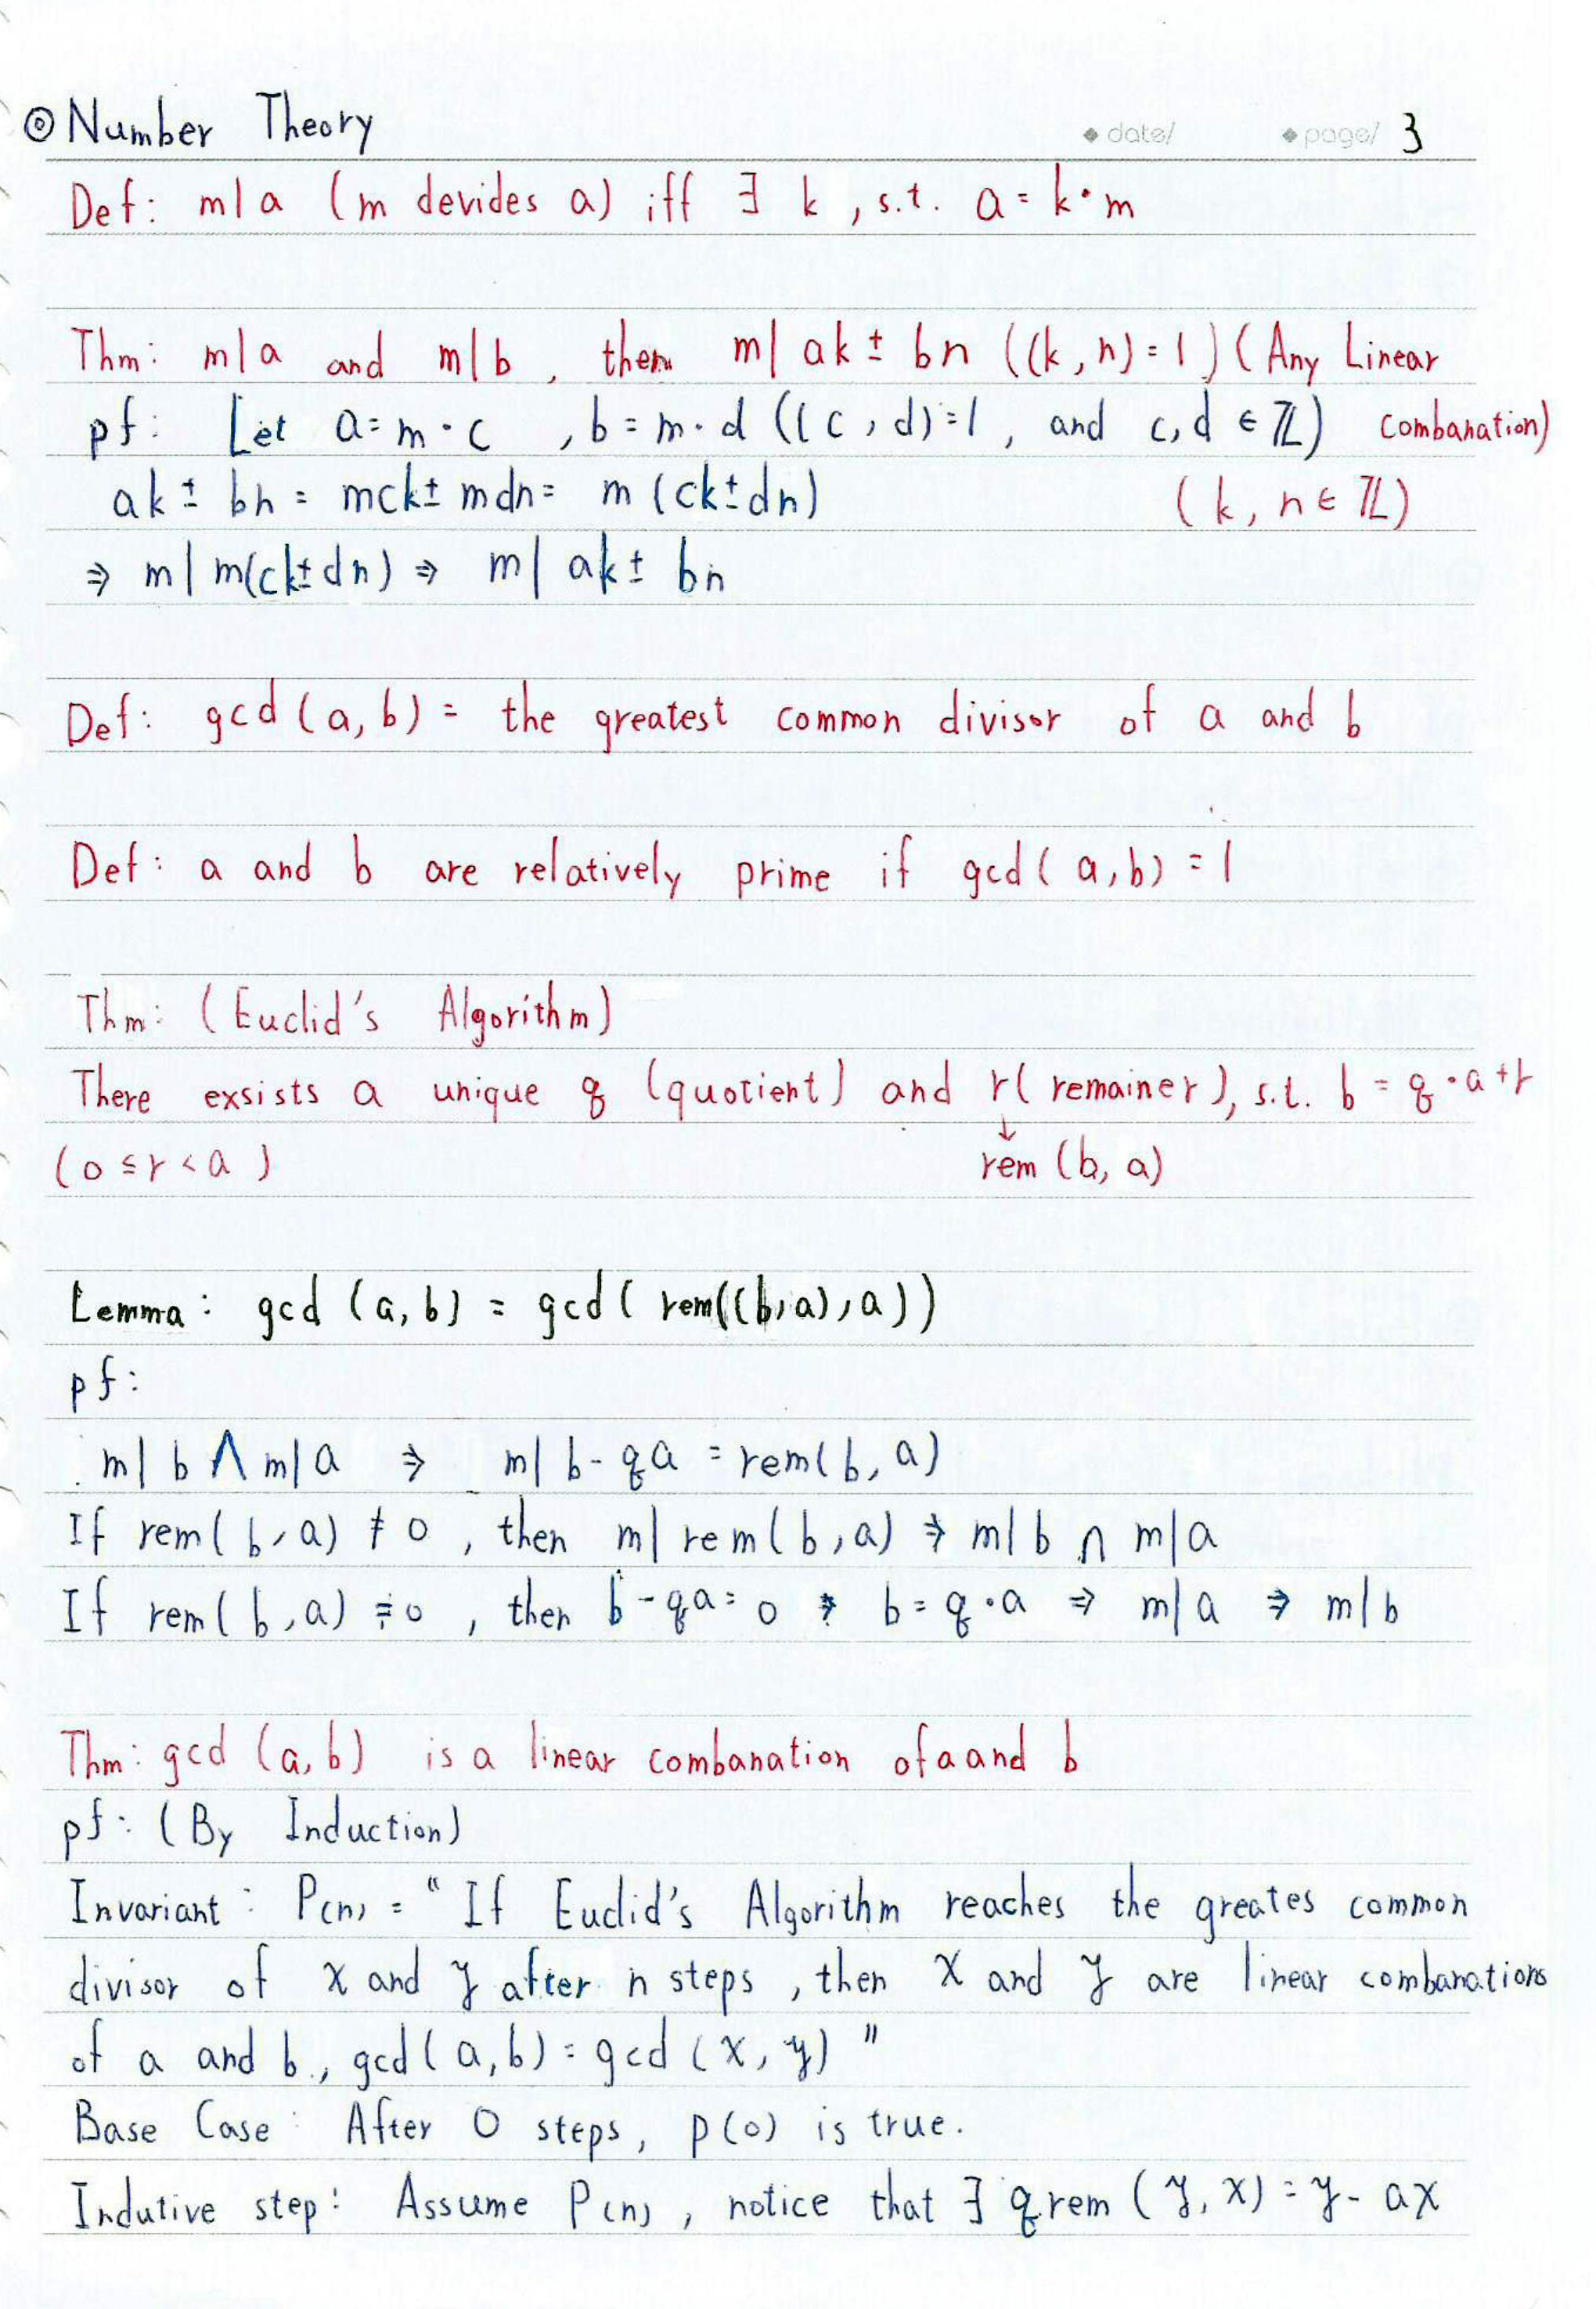 ◎ Number Theory ◆ date/ ◆ page/ 3
Def: m|a (m devides a) iff ∃ k, s.t. a = k·m
Thm: m|a and m|b, then m| ak ± bn ((k, n) = 1) (Any Linear
pf: Let a = m·c, b = m·d ((c, d) = 1, and c, d ∈ ℤ) combanation)
ak ± bn = mck ± mdn = m (ck ± dn) (k, n ∈ ℤ)
⇒ m | m(ck ± dn) ⇒ m | ak ± bn
Def: gcd (a, b) = the greatest common divisor of a and b
Def: a and b are relatively prime if gcd( a, b) = 1
Thm: (Euclid's Algorithm)
There exsists a unique q (quotient) and r( remainer), s.t. b = q·a + r
(0 ≤ r < a ) ↓ rem (b, a)
Lemma: gcd (a, b) = gcd ( rem((b, a), a))
pf:
m | b ∧ m | a ⇒ m | b - qa = rem(b, a)
If rem( b, a) ≠ 0, then m | rem(b, a) ⇒ m | b ∩ m | a
If rem( b, a) = 0, then b - qa = 0 ⇒ b = q·a ⇒ m | a ⇒ m | b
Thm: gcd (a, b) is a linear combanation of a and b
pf: (By Induction)
Invariant: P(n) = "If Euclid's Algorithm reaches the greates common
divisor of x and y after n steps, then x and y are linear combanations
of a and b, gcd(a, b) = gcd (x, y) "
Base Case: After 0 steps, p(0) is true.
Indutive step: Assume P(n), notice that ∃ q rem (y, x) = y - ax